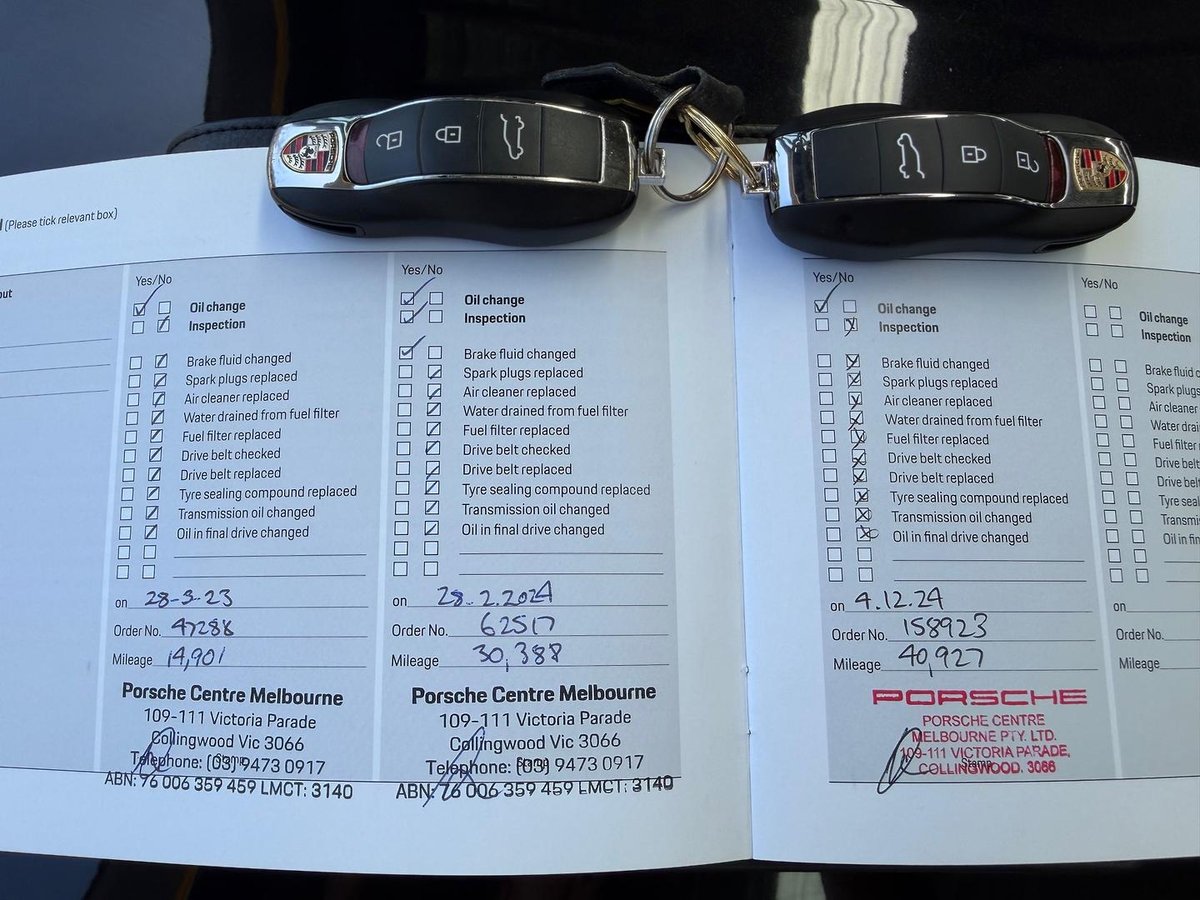 (Please tick relevant box)
out
Yes/No
Oil change
Inspection
Brake fluid changed
Spark plugs replaced
Air cleaner replaced
Water drained from fuel filter
Fuel filter replaced
Drive belt checked
Drive belt replaced
Tyre sealing compound replaced
Transmission oil changed
Oil in final drive changed
on 28-3-23
Order No. 47288
Mileage 14,901
Porsche Centre Melbourne
109-111 Victoria Parade
Collingwood Vic 3066
Telephone: (03) 9473 0917
ABN: 76 006 359 459 LMCT: 3140
Yes/No
Oil change
Inspection
Brake fluid changed
Spark plugs replaced
Air cleaner replaced
Water drained from fuel filter
Fuel filter replaced
Drive belt checked
Drive belt replaced
Tyre sealing compound replaced
Transmission oil changed
Oil in final drive changed
on 28.2.2024
Order No. 62517
Mileage 30,388
Porsche Centre Melbourne
109-111 Victoria Parade
Collingwood Vic 3066
Telephone: (03) 9473 0917
Stamp
ABN: 76 006 359 459 LMCT: 3140
Yes/No
Oil change
Inspection
Brake fluid changed
Spark plugs replaced
Air cleaner replaced
Water drained from fuel filter
Fuel filter replaced
Drive belt checked
Drive belt replaced
Tyre sealing compound replaced
Transmission oil changed
Oil in final drive changed
on 4.12.24
Order No. 158923
Mileage 40,927
PORSCHE
PORSCHE CENTRE
MELBOURNE PTY. LTD.
109-111 VICTORIA PARADE,
Stamp
COLLINGWOOD. 3066
Yes/No
Oil change
Inspection
Brake fluid c
Spark plugs
Air cleaner
Water drai
Fuel filter
Drive belt
Drive belt
Tyre sea
Transmi
Oil in fin
on
Order No.
Mileage